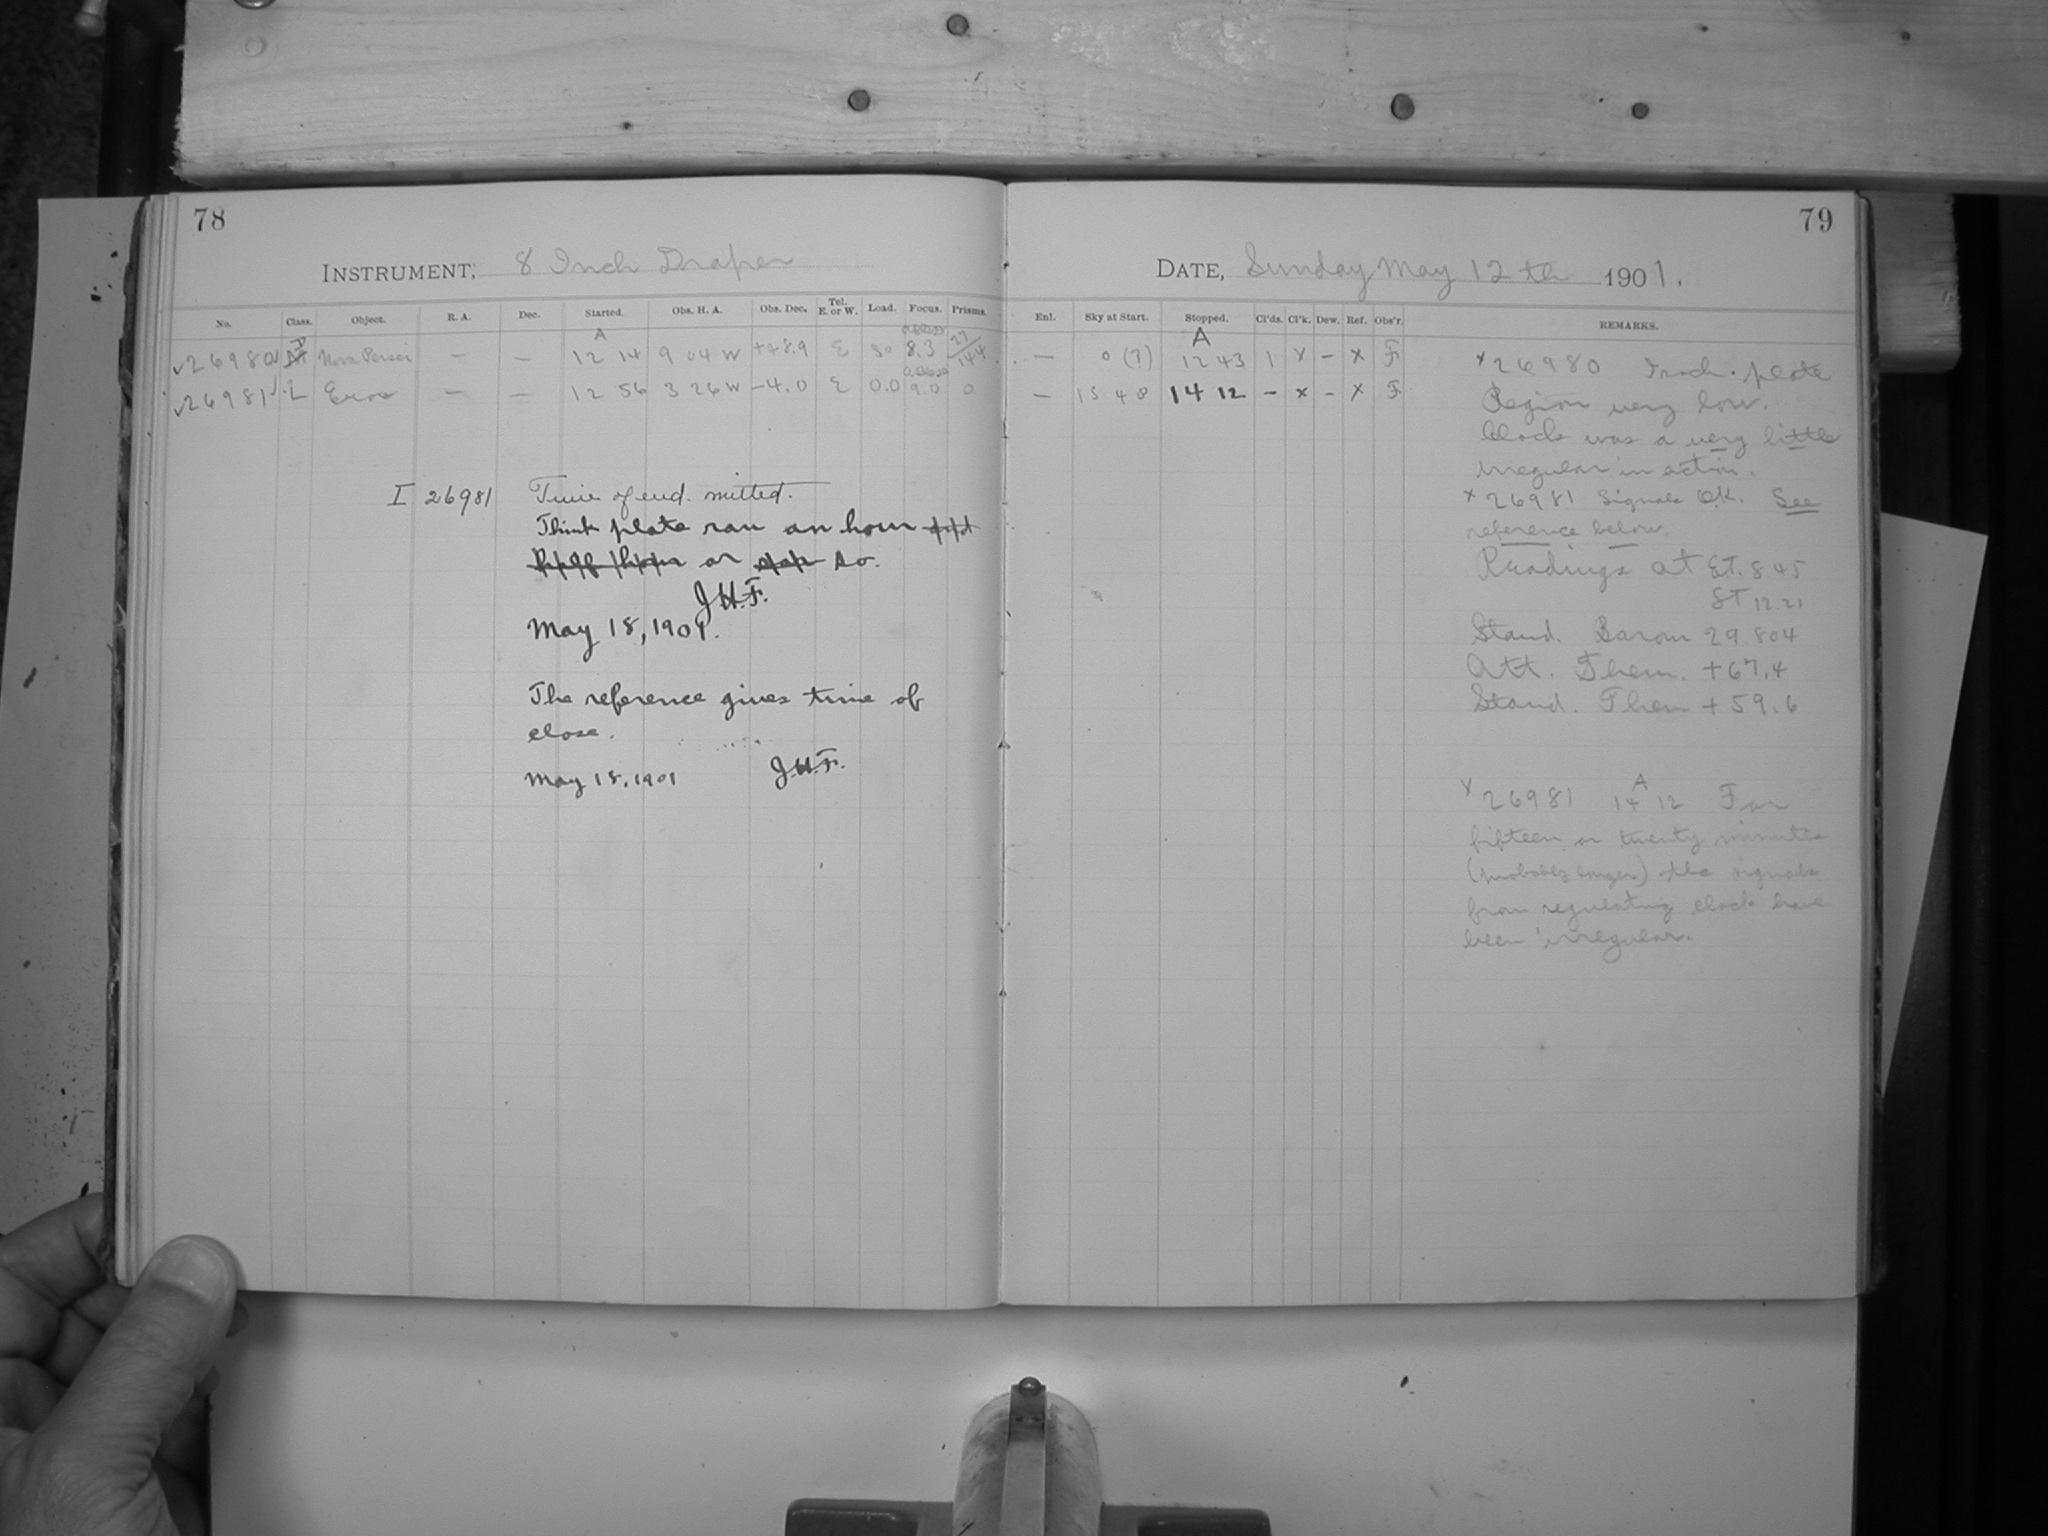 78
INSTRUMENT, 8 Inch Draper
No. Class. Object. R. A. Dec. Started. Obs. H. A. Obs. Dec. Tel. E. or W. Load. Focus. Prisms.
A
√26980√ Nova Persei — — 12 14 9 04 W +48.9 E 8.3 144
√26981√ L Eros — — 12 56 3 26 W −4.0 E 0.0 9.0 0
I 26981 Time of end. mitted.
Think plate ran an hour
or so.
J.H.F.
May 18, 1901.
The reference gives time of
close.
May 18, 1901 J.H.F.
79
DATE, Sunday May 12th 1901.
Enl. Sky at Start. Stopped. Cl'ds. Cl'k. Dew. Ref. Obs'r. REMARKS.
A
— 0 (?) 12 43 1 x – x F
— 15 48 14 12 – x – x F
x 26980 plate
Region very low.
Clock was a very little
irregular in action.
x 26981 Signals O.K. See
reference below.
Readings at E.T. 8.45
ST 12.21
Stand. Barom 29.804
Att. Therm. +67.4
Stand. Therm +59.6
A
x 26981 14 12 For
fifteen or twenty minutes
(probably longer) the signals
from regulating clock have
been irregular.